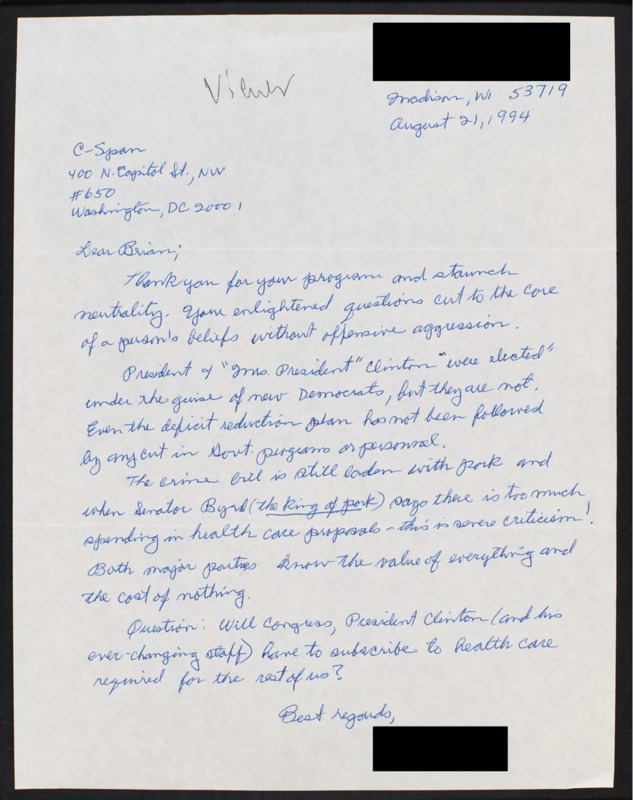 Viewer
Madison, WI 53719
August 21, 1994
C-Span
400 N. Capitol St., NW
#650
Washington, DC 20001
Dear Brian;
Thank you for your program and staunch
neutrality. Your enlightened questions cut to the core
of a person's beliefs without offensive aggression.
President & "Ms. President" Clinton "were elected"
under the guise of new Democrats, but they are not.
Even the deficit reduction plan has not been followed
by any cut in Govt. programs or personnel.
The crime bill is still laden with pork and
when Senator Byrd (the king of pork) says there is too much
spending in health care proposals - this is severe criticism!
Both major parties know the value of everything and
the cost of nothing.
Question: Will Congress, President Clinton (and his
ever-changing staff) have to subscribe to health care
required for the rest of us?
Best regards,